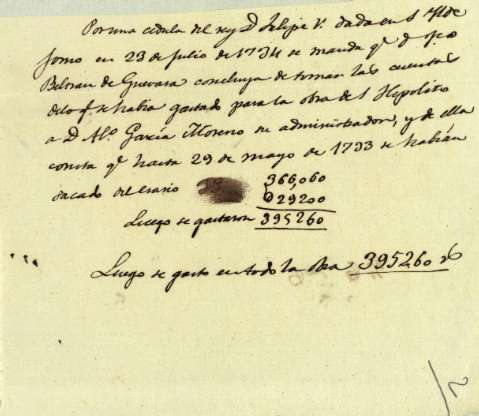 Por una cedula del rey D. Felipe V. dada en S. Ildefonso en 23 de Julio de 1734 se manda q.e d.
Beltran de Guevara concluya de tomar las cuentas
delo q. se habia gastado para la obra de S. Hipolito
a D. Al.o Garcia Moreno su administrador, y de ella
consta q.e hasta 29 de mayo de 1733 se habian
sacado del erario 366,060
029200
Luego se gastaron 395260
Luego se gasto en todo la obra 395260
2